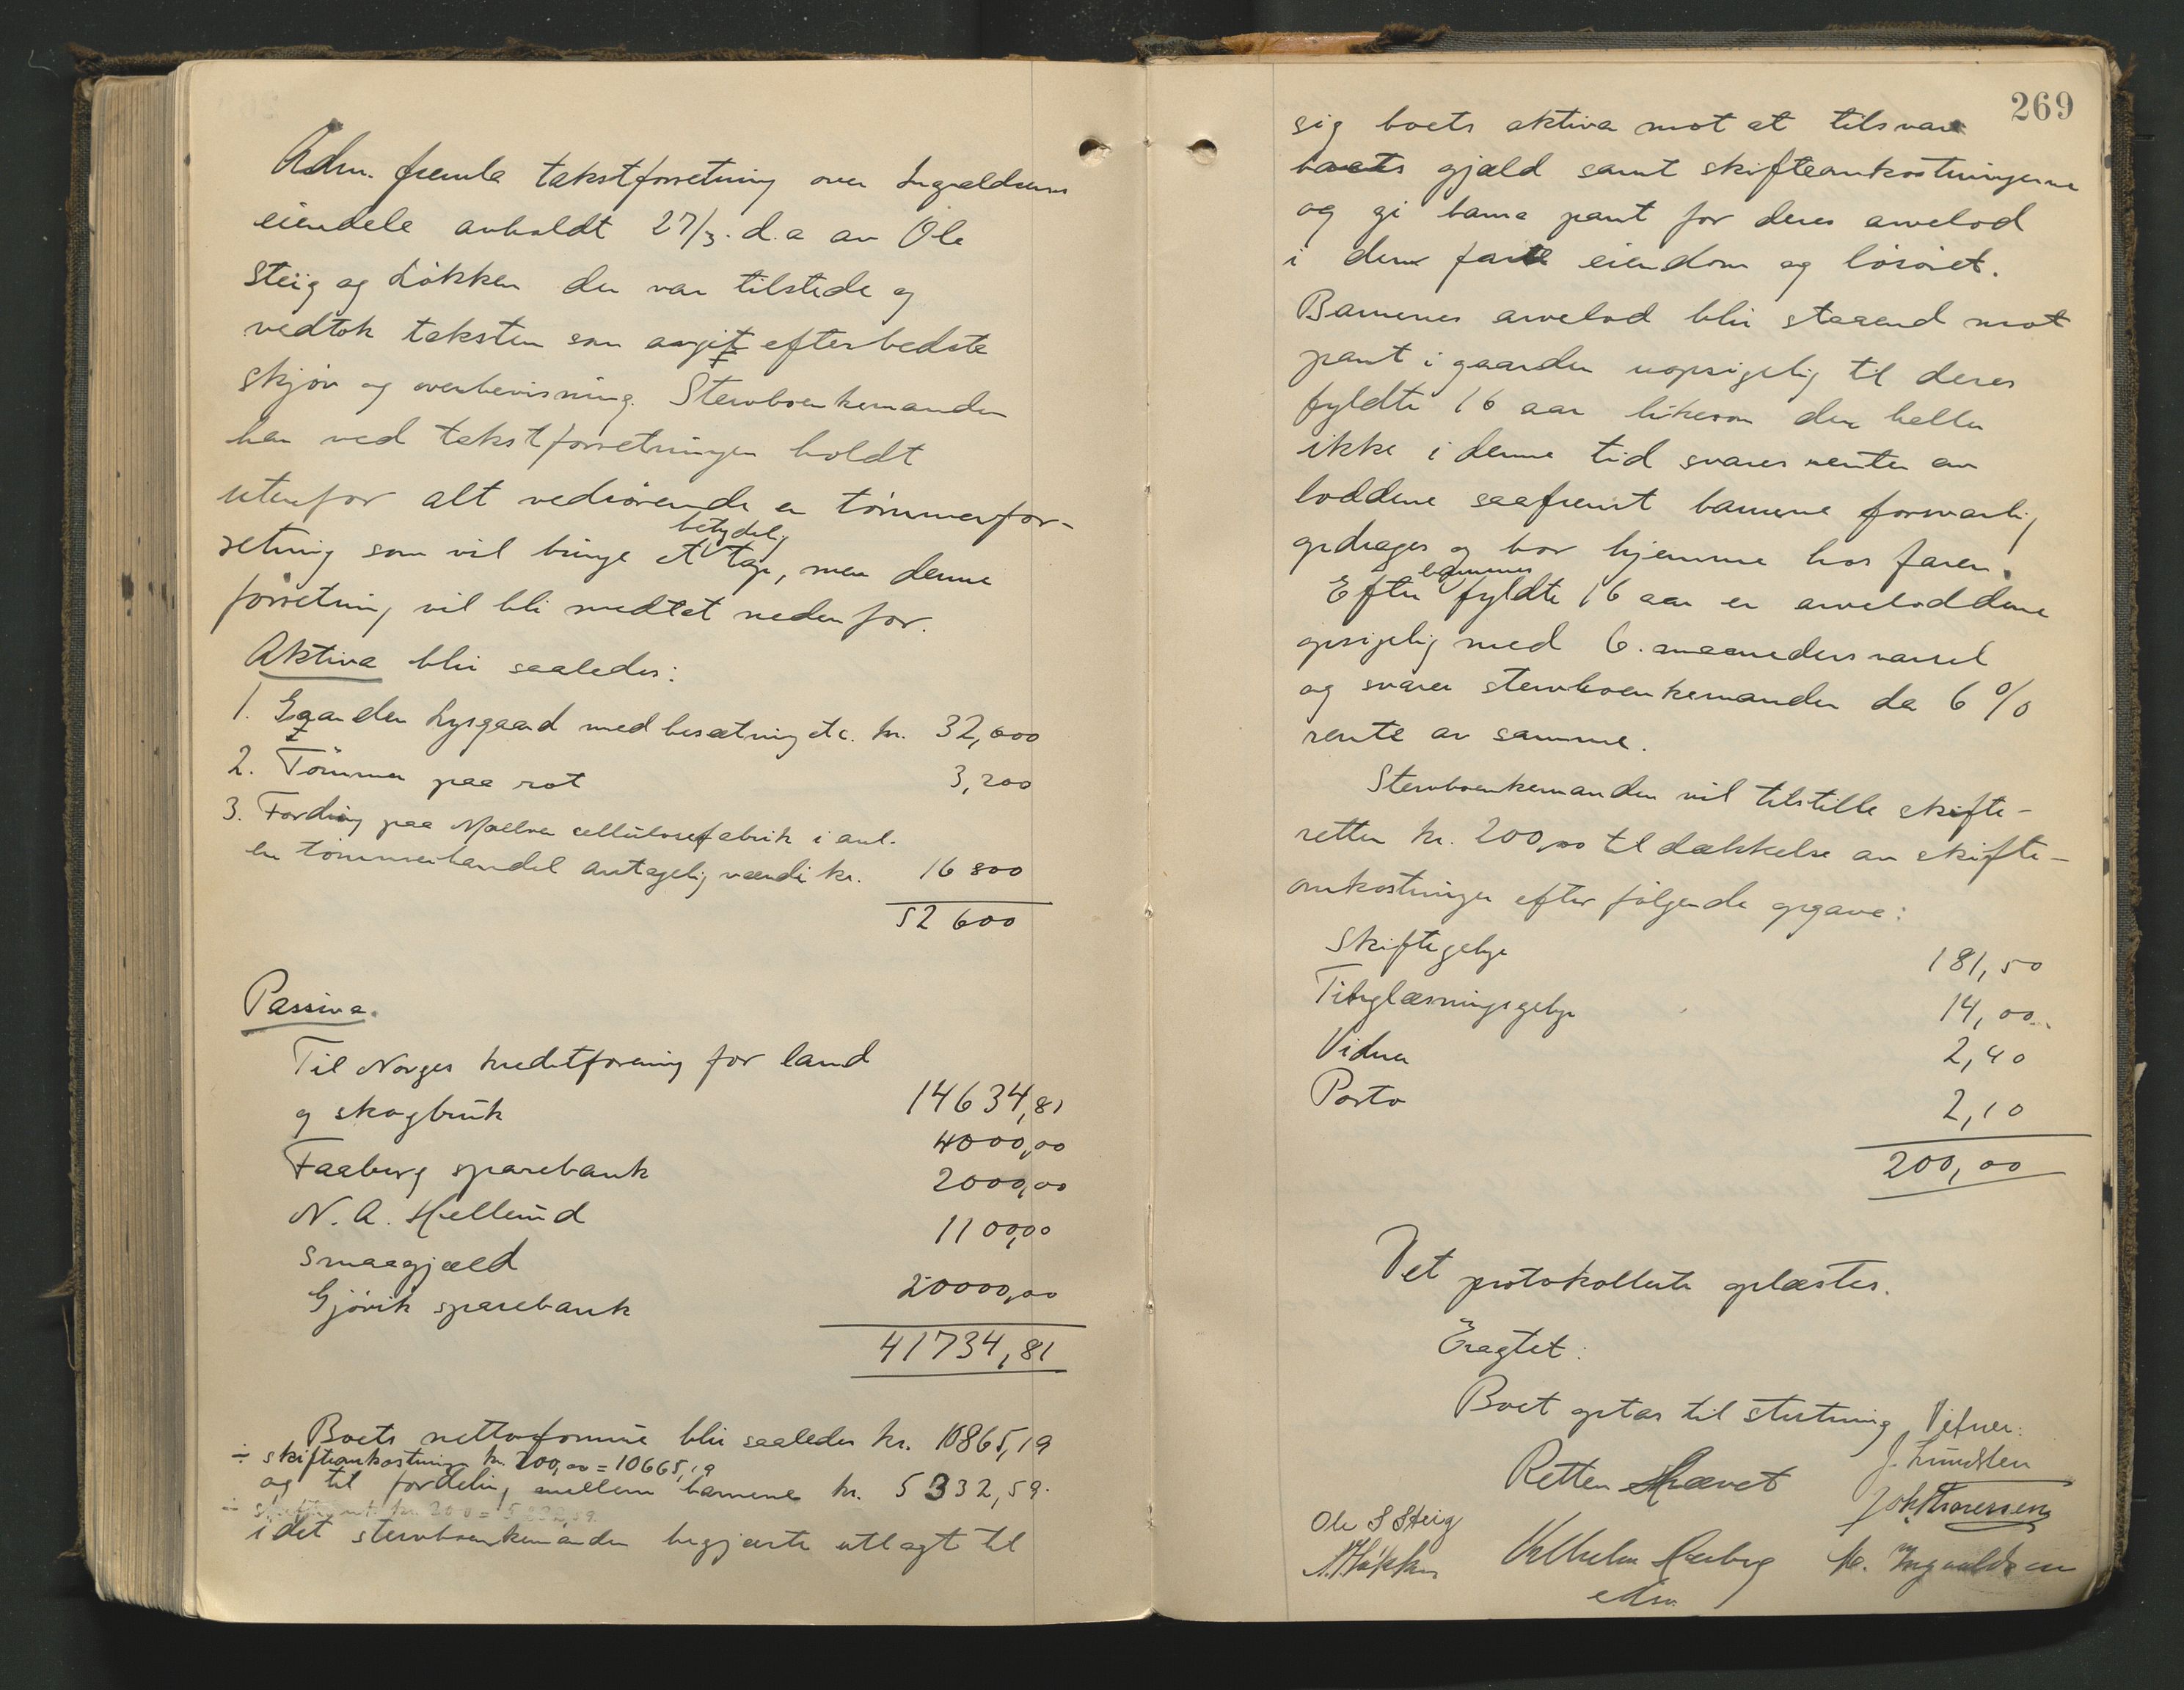 Adm. fremla takstforretning over Ingvaldsens
eiendele avholdt 27/3. d.a av Ole
Steig og Løkken der var tilstede og
vedtok taksten som avgit efter bedste
skjøn og overbevisning. Stervboenkemanden
har ved takstforretningen holdt
utenfor alt vedrørende en tømmerfor-
betydelig
retning som vil bringe et tap, men denne
forretning vil bli medtat nedenfor.
Aktiva blir saaledes:
1. Gaarden Lysgaard med besætning etc. kr. 32,600
2. Tømmer paa rot 3,200
3. Fordring paa Mjøllner cellulosefabrik i anl.
en tømmerhandel antagelig værdi kr. 16 800
52 600
Passiva.
Til Norges kreditforening for land
og skogbruk 14634,81
Faaberg sparebank 4000,00
N. A. Hellerud 2000,00
Smaagjæld 1100,00
Gjøvik sparebank 20000,00
41734,81
Boets nettoformue blir saaledes kr. 10865,19
÷ skifteomkostninger kr. 200,00 = 10665,19
og til fordeling mellem barnene kr. 5332,59.
idet stervboenkemanden begjærte utlagt til
269
sig boets aktiva mot at tilsvare
boets gjæld samt skifteomkostningerne
og gi barna pant for deres arvelod
i den faste eiendom og løsøret.
Barnenes arvelod blir staaend mot
pant i gaarden uopsigelig til deres
fyldte 16 aar likesom der heller
ikke i denne tid svares renter av
loddene saafremt barnene forsvarlig
opdrages og bor hjemme hos faren.
barnenes
Efter fyldte 16 aar er arveloddene
opsigelig med 6. maaneders varsel
og svarer stervboenkemanden da 6 %
rente av samme.
Stervboenkemanden vil tilstille skifte-
retten kr. 200,00 til dækkelse av skifte-
omkostninger efter følgende opgave:
Skiftegebyr 181,50
Tinglæsningsgebyr 14,00
Vidner 2,40
Porto 2,10
200,00
Det protokollerte oplæstes.
Eragtet:
Boet optas til slutning
Retten hævet
Vitner:
J. Lundsten
Joh Thoressen
Ole S Steig
N. Løkken
Vilhelm
adm.
M. Ingvaldsen